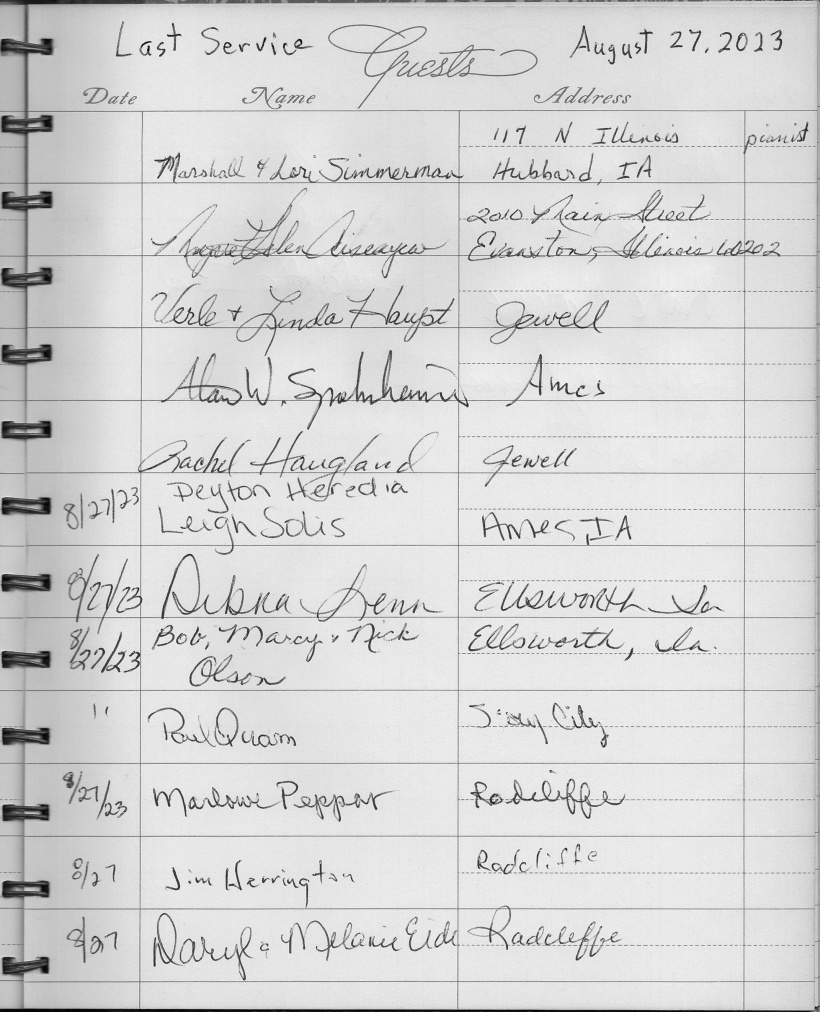 Last Service Guests August 27, 2023
Date Name Address
117 N Illinois pianist
Marshall & Lori Simmerman Hubbard, IA
2010 Main Street
Helen Evanston, Illinois 60202
Verle + Linda Haupt Jewell
Alan W. Ames
Rachel Haugland Jewell
Peyton Heredia
8/27/23 Leigh Solis Ames, IA
8/27/23 Debra Ellsworth Ia
8/27/23 Bob, Marcy & Nick Ellsworth, Ia.
Olson
" Paul Quam Sioux City
8/27/23 Marlowe Radcliffe
8/27 Jim Herrington Radcliffe
8/27 Daryl & Melanie Eide Radcliffe